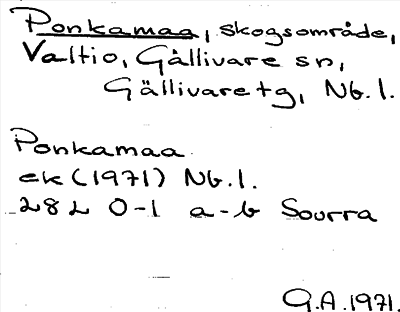 Ponkamaa, skogsområde,
Valtio, Gällivare sn,
Gällivare tg, Nb.l.
Ponkamaa
ek (1971) Nb.l.
28L 0-1 a-b Sourra
G.A. 1971.